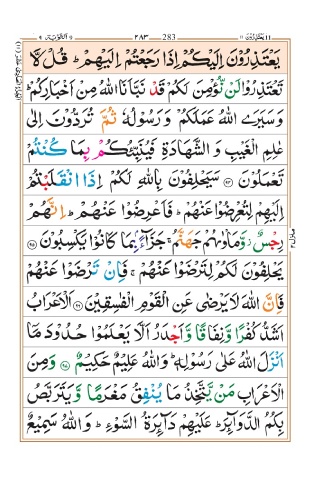 یعتذرون ۱۱ ۲۸۳ 283 التوبة ۹
یَعْتَذِرُوْنَ اِلَیْكُمْ اِذَا رَجَعْتُمْ اِلَیْهِمْ ؕ قُلْ لَّا
تَعْتَذِرُوْا لَنْ نُّؤْمِنَ لَكُمْ قَدْ نَبَّاَنَا اللّٰهُ مِنْ اَخْبَارِكُمْ ؕ
وَ سَیَرَی اللّٰهُ عَمَلَكُمْ وَ رَسُوْلُهٗ ثُمَّ تُرَدُّوْنَ اِلٰی
عٰلِمِ الْغَیْبِ وَ الشَّهَادَةِ فَیُنَبِّئُكُمْ بِمَا كُنْتُمْ
تَعْمَلُوْنَ ﴿۹۴﴾ سَیَحْلِفُوْنَ بِاللّٰهِ لَكُمْ اِذَا انْقَلَبْتُمْ
اِلَیْهِمْ لِتُعْرِضُوْا عَنْهُمْ ؕ فَاَعْرِضُوْا عَنْهُمْ ؕ اِنَّهُمْ
رِجْسٌ ؗ وَّ مَاْوٰىهُمْ جَهَنَّمُ ۚ جَزَآءًۢ بِمَا كَانُوْا یَكْسِبُوْنَ ﴿۹۵﴾
یَحْلِفُوْنَ لَكُمْ لِتَرْضَوْا عَنْهُمْ ۚ فَاِنْ تَرْضَوْا عَنْهُمْ
فَاِنَّ اللّٰهَ لَا یَرْضٰی عَنِ الْقَوْمِ الْفٰسِقِیْنَ ﴿۹۶﴾ اَلْاَعْرَابُ
اَشَدُّ كُفْرًا وَّ نِفَاقًا وَّ اَجْدَرُ اَلَّا یَعْلَمُوْا حُدُوْدَ مَاۤ
اَنْزَلَ اللّٰهُ عَلٰی رَسُوْلِهٖ ؕ وَ اللّٰهُ عَلِیْمٌ حَكِیْمٌ ﴿۹۷﴾ وَ مِنَ
الْاَعْرَابِ مَنْ یَّتَّخِذُ مَا یُنْفِقُ مَغْرَمًا وَّ یَتَرَبَّصُ
بِكُمُ الدَّوَآىِٕرَ ؕ عَلَیْهِمْ دَآىِٕرَةُ السَّوْءِ ؕ وَ اللّٰهُ سَمِیْعٌ